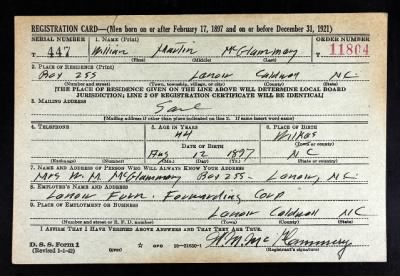 REGISTRATION CARD—(Men born on or after February 17, 1897 and on or before December 31, 1921)
SERIAL NUMBER 1. Name (Print) ORDER NUMBER
T 447 William Marlin McGlammery T 11804
(First) (Middle) (Last)
2. Place of Residence (Print)
Box 255 Lenoir Caldwell NC
(Number and street) (Town, township, village, or city) (County) (State)
[THE PLACE OF RESIDENCE GIVEN ON THE LINE ABOVE WILL DETERMINE LOCAL BOARD
JURISDICTION; LINE 2 OF REGISTRATION CERTIFICATE WILL BE IDENTICAL]
3. Mailing Address
Same
[Mailing address if other than place indicated on line 2. If same insert word same]
4. Telephone 5. Age in Years 6. Place of Birth
44 Wilkes
Date of Birth (Town or county)
Aug 12 1897 NC
(Exchange) (Number) (Mo.) (Day) (Yr.) (State or country)
7. Name and Address of Person Who Will Always Know Your Address
Mrs W. M. McGlammery Box 255- Lenoir, NC
8. Employer's Name and Address
Lenoir Furn. Forwarding Corp
9. Place of Employment or Business
Lenoir Caldwell NC
(Number and street or R. F. D. number) (Town) (County) (State)
I Affirm That I Have Verified Above Answers and That They Are True.
D. S. S. Form 1
(Revised 1-1-42) GPO 16—21630-1
W M McGlammery
(Registrant's signature)